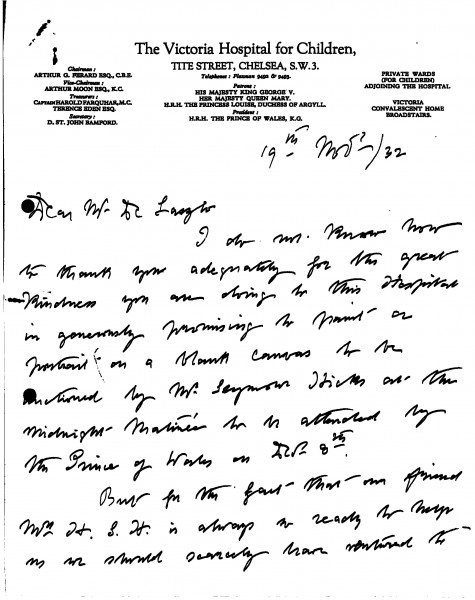 The Victoria Hospital for Children,
TITE STREET, CHELSEA, S.W.3.
Telephone: Flaxman 9492 & 9493.
Chairman:
ARTHUR G. FERARD ESQ., C.B.E.
Vice-Chairman:
ARTHUR MOON ESQ., K.C.
Treasurers:
CAPTAIN HAROLD FARQUHAR, M.C.
TERENCE EDEN ESQ.
Secretary:
D. ST. JOHN BAMFORD.
Patrons:
HIS MAJESTY KING GEORGE V.
HER MAJESTY QUEEN MARY.
H.R.H. THE PRINCESS LOUISE, DUCHESS OF ARGYLL.
President:
H.R.H. THE PRINCE OF WALES, K.G.
PRIVATE WARDS
(FOR CHILDREN)
ADJOINING THE HOSPITAL
VICTORIA
CONVALESCENT HOME
BROADSTAIRS.
19th Novr/32
Dear Mr De Laszlo
I do not know how
to thank you adequately for the great
kindness you are doing to this Hospital
in generously promising to paint a
portrait on a blank canvas to be
auctioned by Mr Seymour Hicks at the
Midnight Matinée to be attended by
the Prince of Wales on Dec. 8th.
But for the fact that our friend
H. S. H. is always so ready to help
us we should scarcely have ventured to